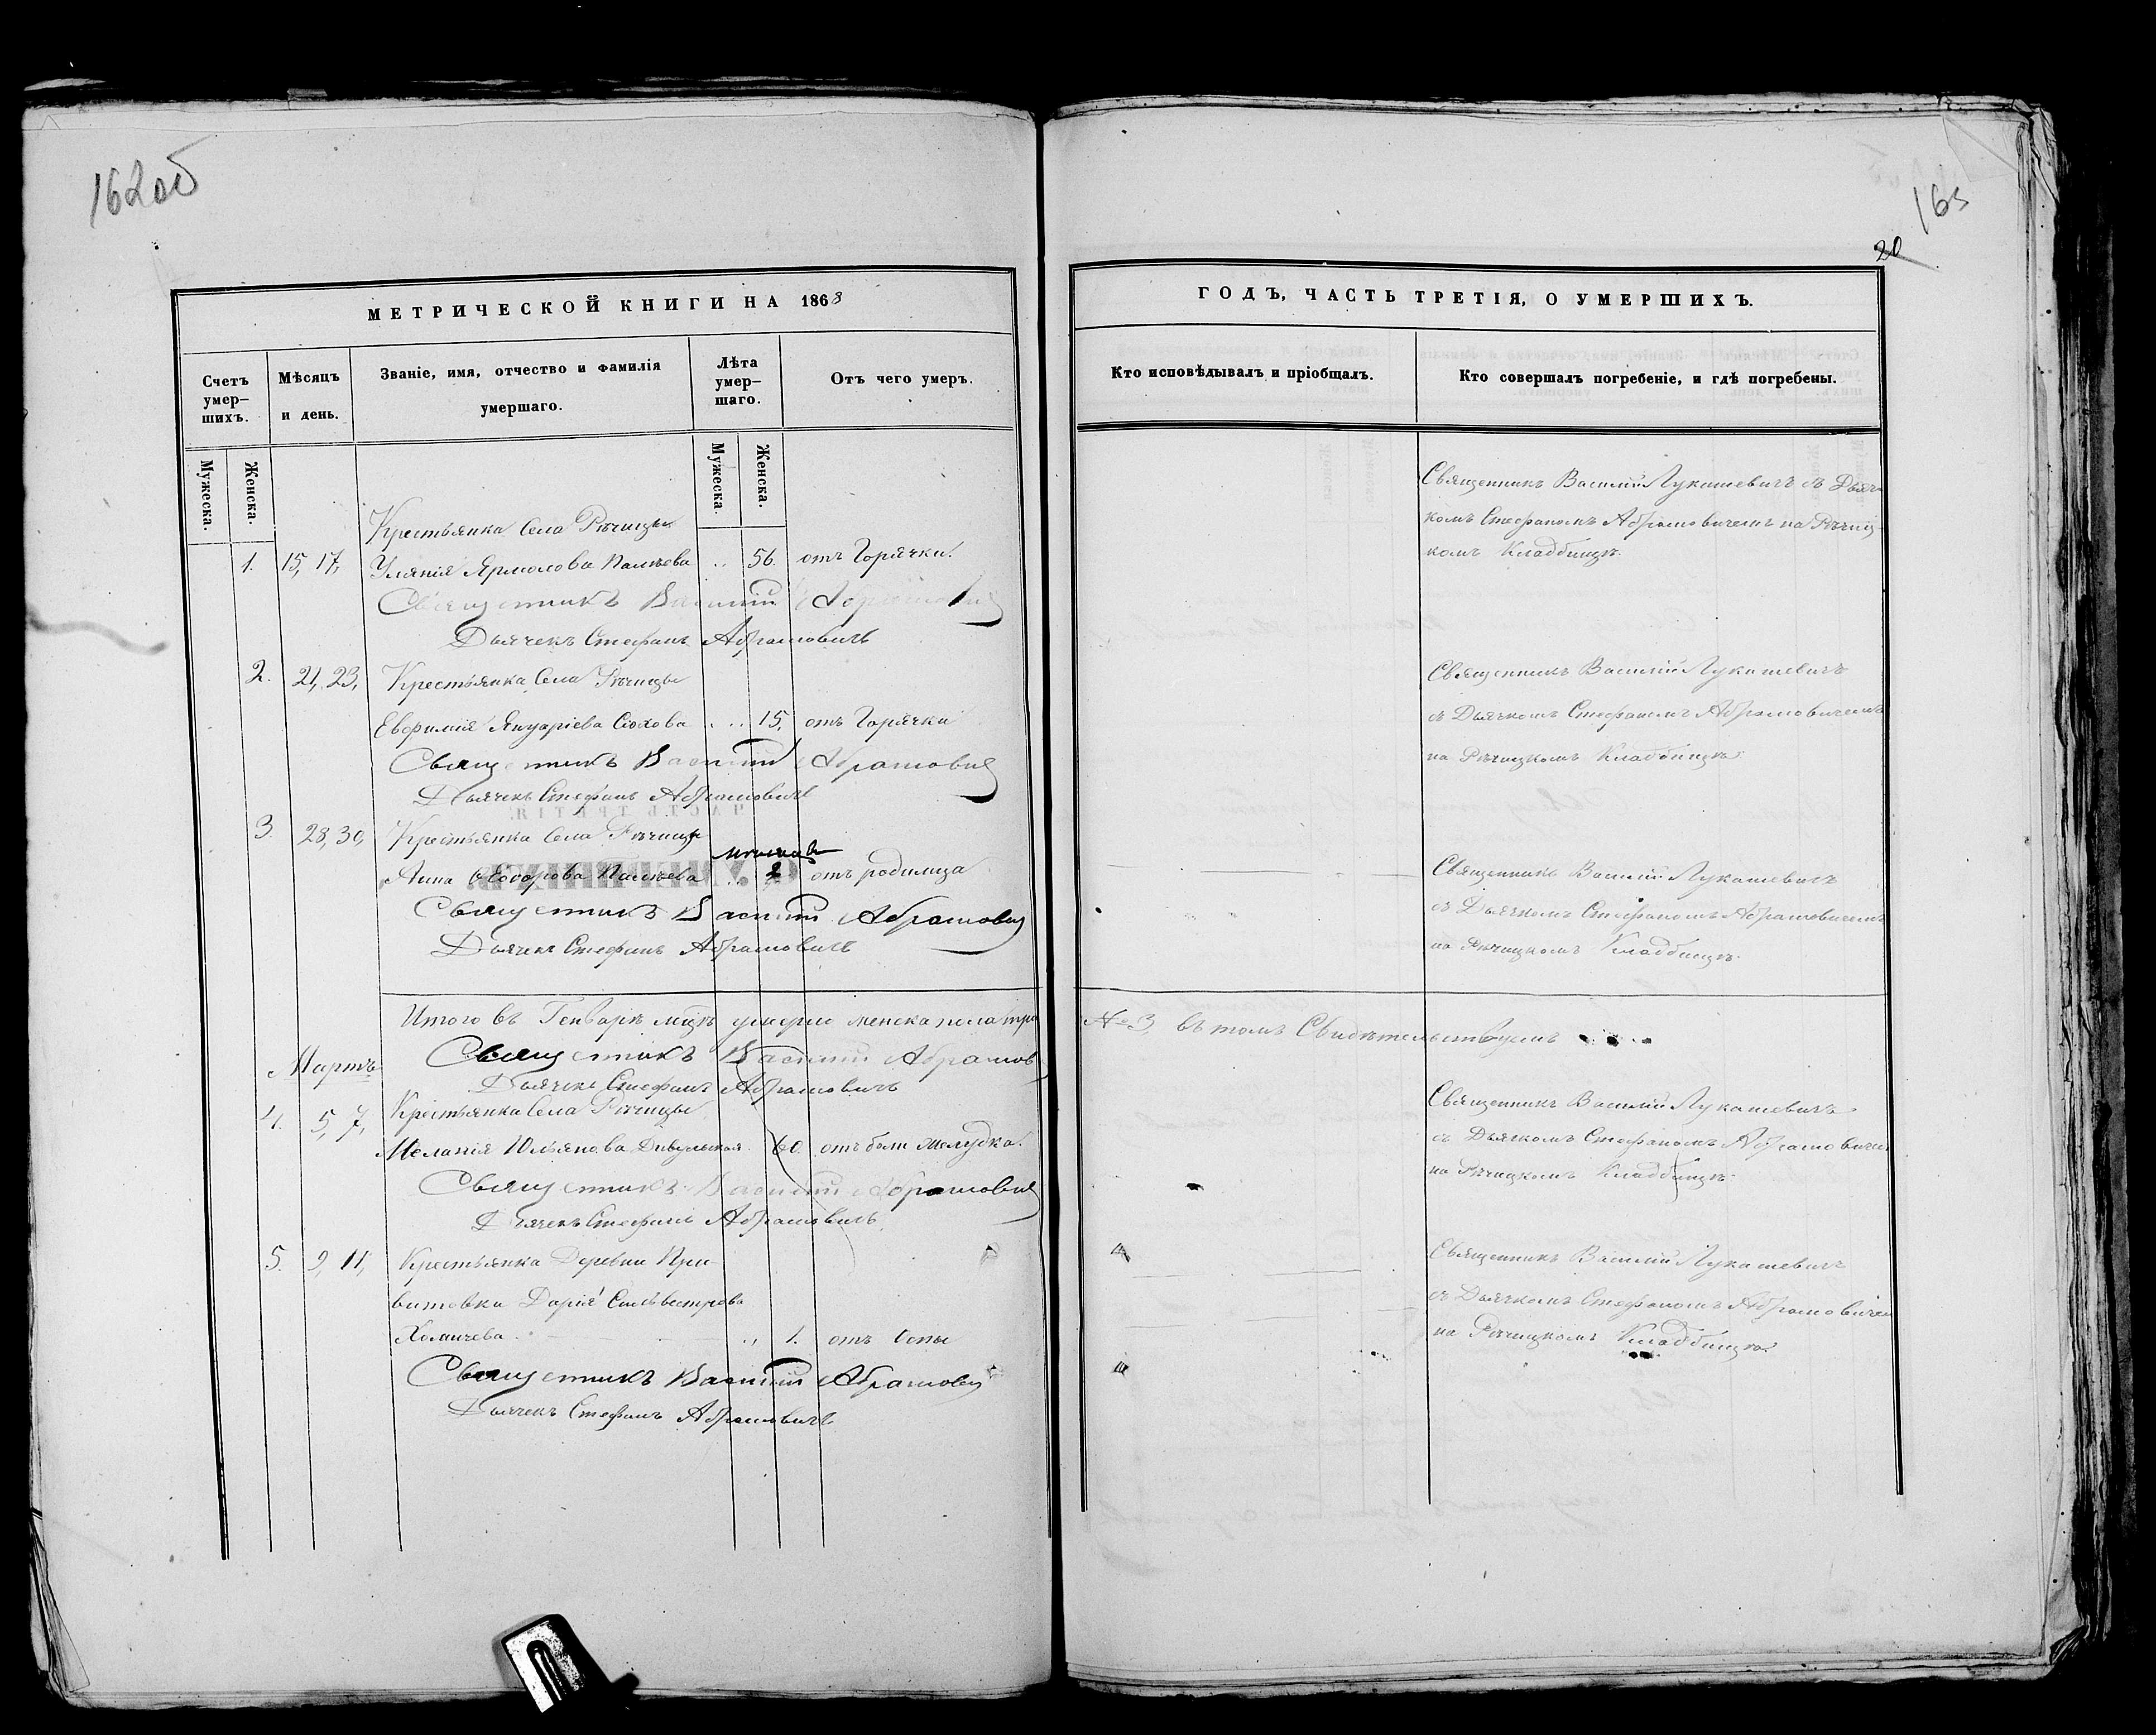 162об
МЕТРИЧЕСКОЙ КНИГИ НА 1868
Счетъ умер-шихъ.
Мѣсяцъ и день.
Званіе, имя, отчество и фамилія умершаго.
Лѣта умер-шаго.
Отъ чего умеръ.
Мужеска.
Женска.
Мужеска.
Женска.
Крестьянка Села Рѣчицы
1. 15, 17, Улянія Ярмолова Палѣева .. 56. отъ Горячки.
Священникъ Василій Абрамович
Дьячекъ Стефанъ Абрамовичъ
2. 21, 23, Крестьянка Села Рѣчицы
Евфимія Януаріева Сюхова .. 15, отъ Горячки
Священникъ Василій Абрамович
Дьячекъ Стефанъ Абрамовичъ
3. 28, 30, Крестьянка Села Рѣчицы
Анна Ѳеодорова Палѣева .. 2 отъ родимца
Священникъ Василій Абрамович
Дьячекъ Стефанъ Абрамовичъ
Итого въ Генварѣ мцѣ умерло женска пола три
Священникъ Василій Абрамов
Дьячекъ Стефанъ Абрамовичъ
Мартъ
4. 5, 7, Крестьянка Села Рѣчицы
Меланія Юльянова 60. отъ боли желудка.
Священникъ Василій Абрамович
Дьячекъ Стефанъ Абрамовичъ
5. 9, 11, Крестьянка Деревни При-
витовки Дарія Сильвестрова
Хомичева .. 1. отъ Оспы
Священникъ Василій Абрамович
Дьячекъ Стефанъ Абрамовичъ
163
20
ГОДЪ, ЧАСТЬ ТРЕТІЯ, О УМЕРШИХЪ.
Кто исповѣдывалъ и пріобщалъ.
Кто совершалъ погребеніе, и гдѣ погребены.
Священникъ Василій Лукашевичъ съ Дьяч-
комъ Стефаномъ Абрамовичемъ на Рѣчиц-
комъ Кладбищѣ.
Священникъ Василій Лукашевичъ
съ Дьячкомъ Стефаномъ Абрамовичемъ
на Рѣчицкомъ Кладбищѣ.
Священникъ Василій Лукашевичъ
съ Дьячкомъ Стефаномъ Абрамовичемъ
на Рѣчицкомъ Кладбищѣ.
№ 3, въ томъ Свидѣтельствуемъ
Священникъ Василій Лукашевичъ
съ Дьячкомъ Стефаномъ Абрамовичем
на Рѣчицкомъ Кладбищѣ.
Священникъ Василій Лукашевичъ
съ Дьячкомъ Стефаномъ Абрамовичем
на Рѣчицкомъ Кладбищѣ.